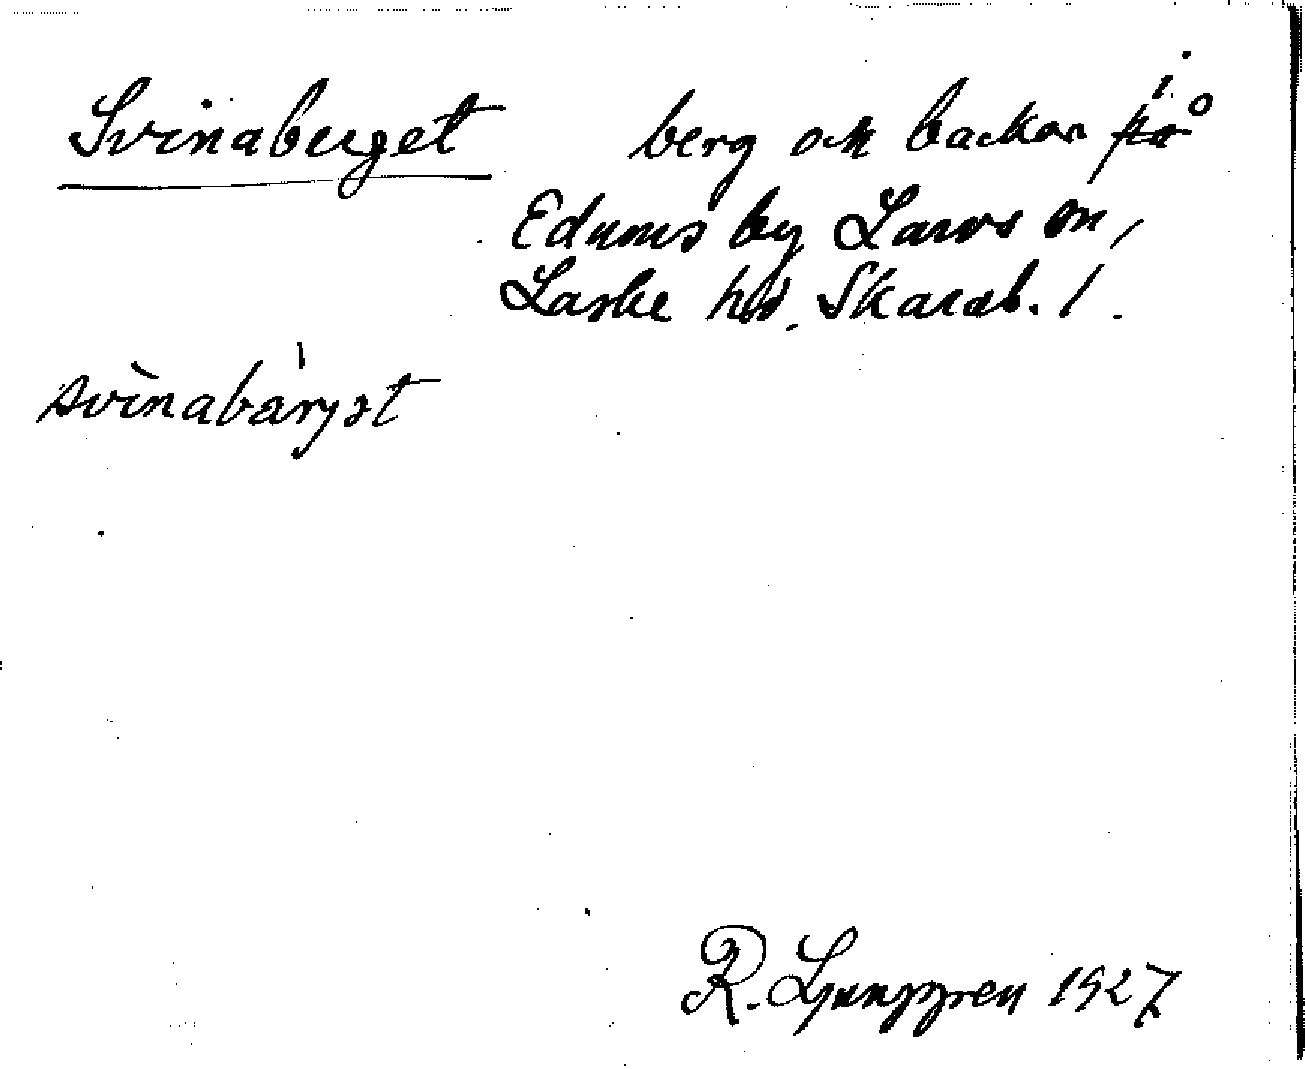 Svinaberget berg och backar i
Edums by Larvs sn,
Laske hd. Skarab. l.
svìnabàryət
R. Ljunggren 1927